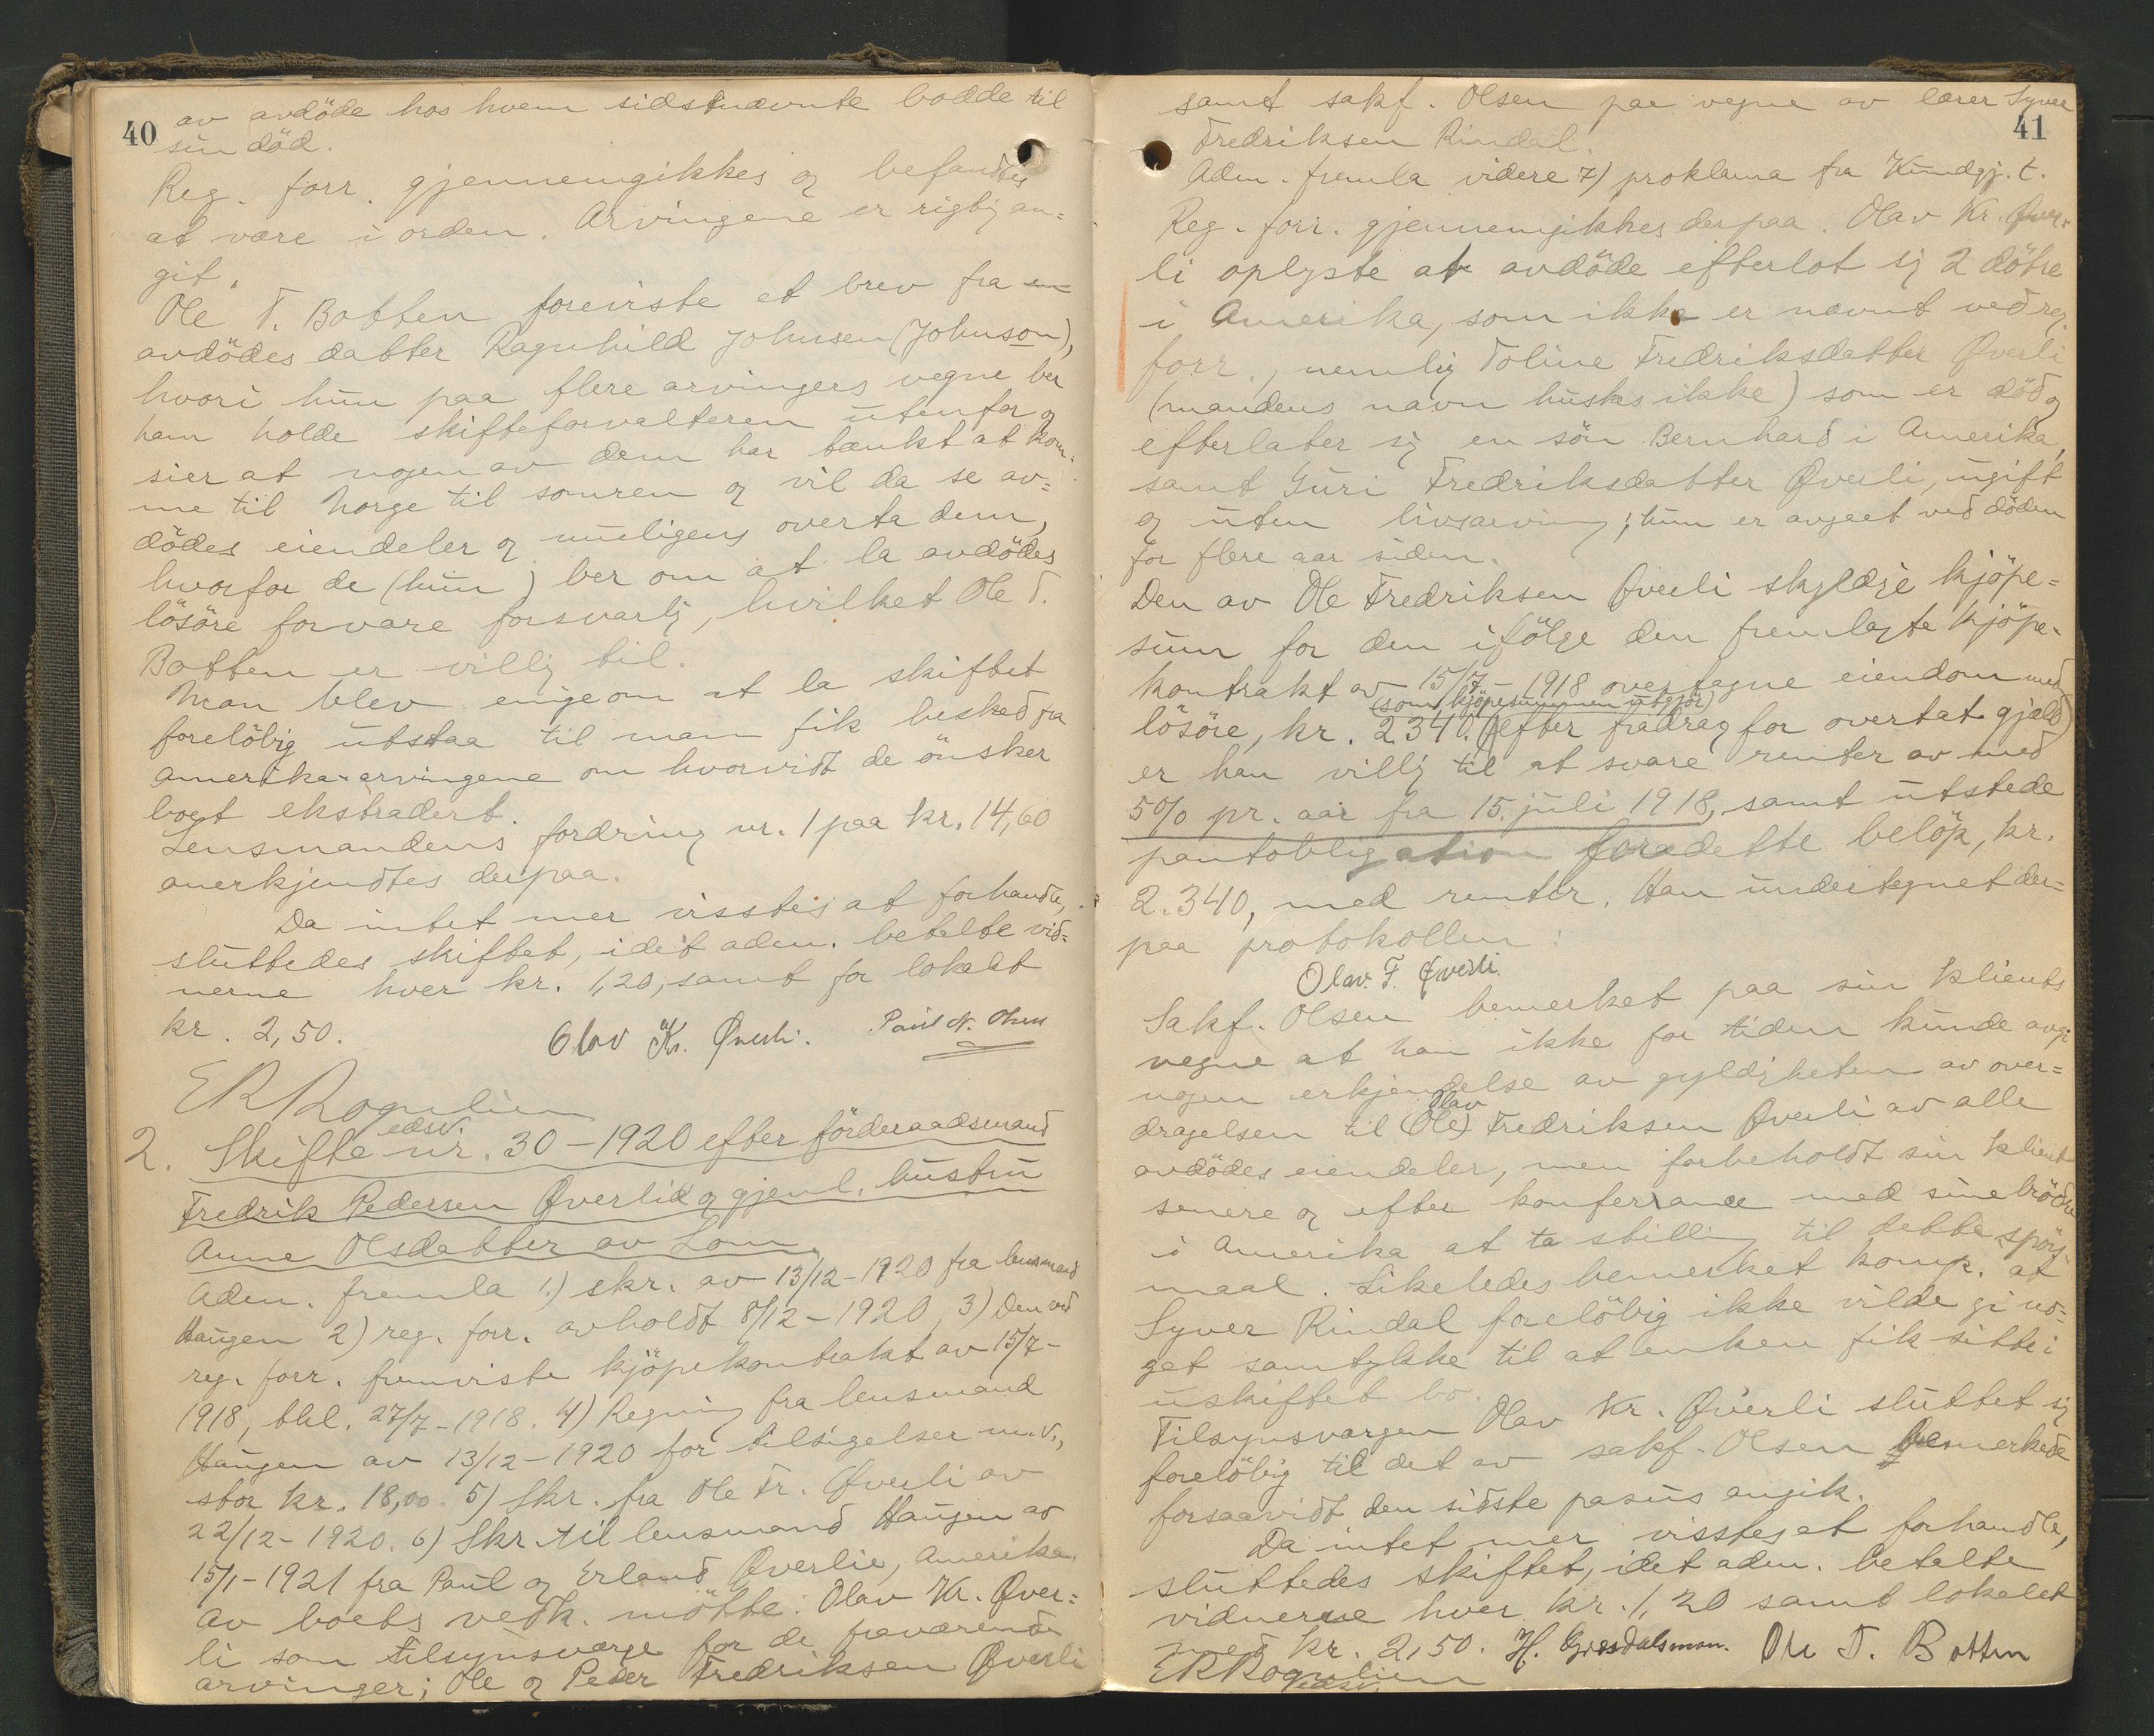 40
av avdöde hos hvem sidstnævnte bodde til
sin död.
Reg. forr. gjennemgikkes og befandtes
at være i orden. Arvingene er rigtig an=
git.
Ole T. Botten foreviste et brev fra
avdödes datter Ragnhild Johnsen (Johnson),
hvori hun paa flere arvingers vegne ber
ham holde skifteforvalteren utenfor og
sier at nogen av dem har tænkt at kom-
me til Norge til somren og vil da se av=
dödes eiendeler og muligens overta dem,
hvorfor de (hun) ber om at la avdödes
lösöre forvare forsvarlig, hvilket Ole T.
Botten er villig til.
Man blev enige om at la skiftet
forelöbig utstaa til man fik besked fra
Amerika-arvingene om hvorvidt de önsker
boet ekstradert.
Lensmandens fordring nr. 1 paa kr. 14,60
anerkjendtes derpaa.
Da intet mer visstes at forhandle,
sluttedes skiftet, idet adm. betalte vid=
nerne hver kr. 1,20, samt for lokalet
kr. 2,50.
Olav Kr. Øverli. Paul N. Olsen
ER Rognlien
edsv.
2. Skifte nr. 30 - 1920 efter förderaadsmand
Fredrik Pedersen Øverlie og gjenl. hustru
Anne Olsdatter av Lom.
Adm. fremla 1.) skr. av 13/12 - 1920 fra lensmand
Haugen 2) reg. forr. avholdt 8/12 - 1920, 3) Den ved
reg. forr. fremviste kjöpekontrakt av 15/7 -
1918, thl. 27/7 - 1918. 4) Regning fra lensmand
Haugen av 13/12 - 1920 for tilsigelser m.v.,
stor kr. 18,00. 5) Skr. fra Ole Fr. Øverli av
22/12 - 1920. 6) Skr. til lensmand Haugen av
15/1 - 1921 fra Paul og Erland Øverlie, Amerika.
Av boets vedk. mötte: Olav Kr. Øver=
li som tilsynsværge for de fraværende
arvinger; Ole og Peder Fredriksen Øverli
41
samt sakf. Olsen paa vegne av lærer Syver
Fredriksen Rindal.
Adm. fremla videre 7) proklama fra Kundgj. t.
Reg. forr. gjennemgikkes derpaa. Olav Kr. Øver-
li oplyste at avdöde efterlot sig 2 dötre
i Amerika, som ikke er nævnt ved reg.
forr., nemlig Toline Fredriksdatter Øverli
(mandens navn huskes ikke) som er död og
efterlater sig en sön Bernhard i Amerika,
samt Guri Fredriksdatter Øverli, ugift
og uten livsarving; hun er avgaat ved döden
for flere aar siden.
Den av Ole Fredriksen Øverli skyldige kjöpe=
sum for den ifölge den fremlagte kjöpe-
kontrakt av 15/7 - 1918 overtagne eiendom med
(som kjöpesummen utgjör)
lösöre, kr. 2.340. (efter fradrag for overtat gjæld)
er han villig til at svare renter av med
5% pr. aar fra 15. juli 1918, samt utstede
pantobligation for dette belöp, kr.
2.340, med renter. Han undertegnet der=
paa protokollen:
Olav. F. Øverli.
Sakf. Olsen bemerket paa sin klients
vegne at han ikke for tiden kunde avgi
nogen erkjendelse av gyldigheten av over=
Olav
dragelsen til (Ole) Fredriksen Øverli av alle
avdödes eiendeler, men forbeholdt sin klient
senere og efter konferrance med sine brödre
i Amerika at ta stilling til dette spörs-
maal. Likeledes bemerket komp. at
Syver Rindal forelöbig ikke vilde gi no=
get samtykke til at enken fik sitte i
uskiftet bo.
Tilsynsværgen Olav Kr. Øverli sluttet sig
forelöbig til det av sakf. Olsen bemerkede
forsaavidt den sidste pasus angik.
Da intet mer visstes at forhandle,
sluttedes skiftet, idet adm. betalte
vidnerne hver kr. 1,20 samt lokalet
med kr. 2,50. H. Grosdalsmoen. Ole T. Botten
ER Rognlien
edsv.